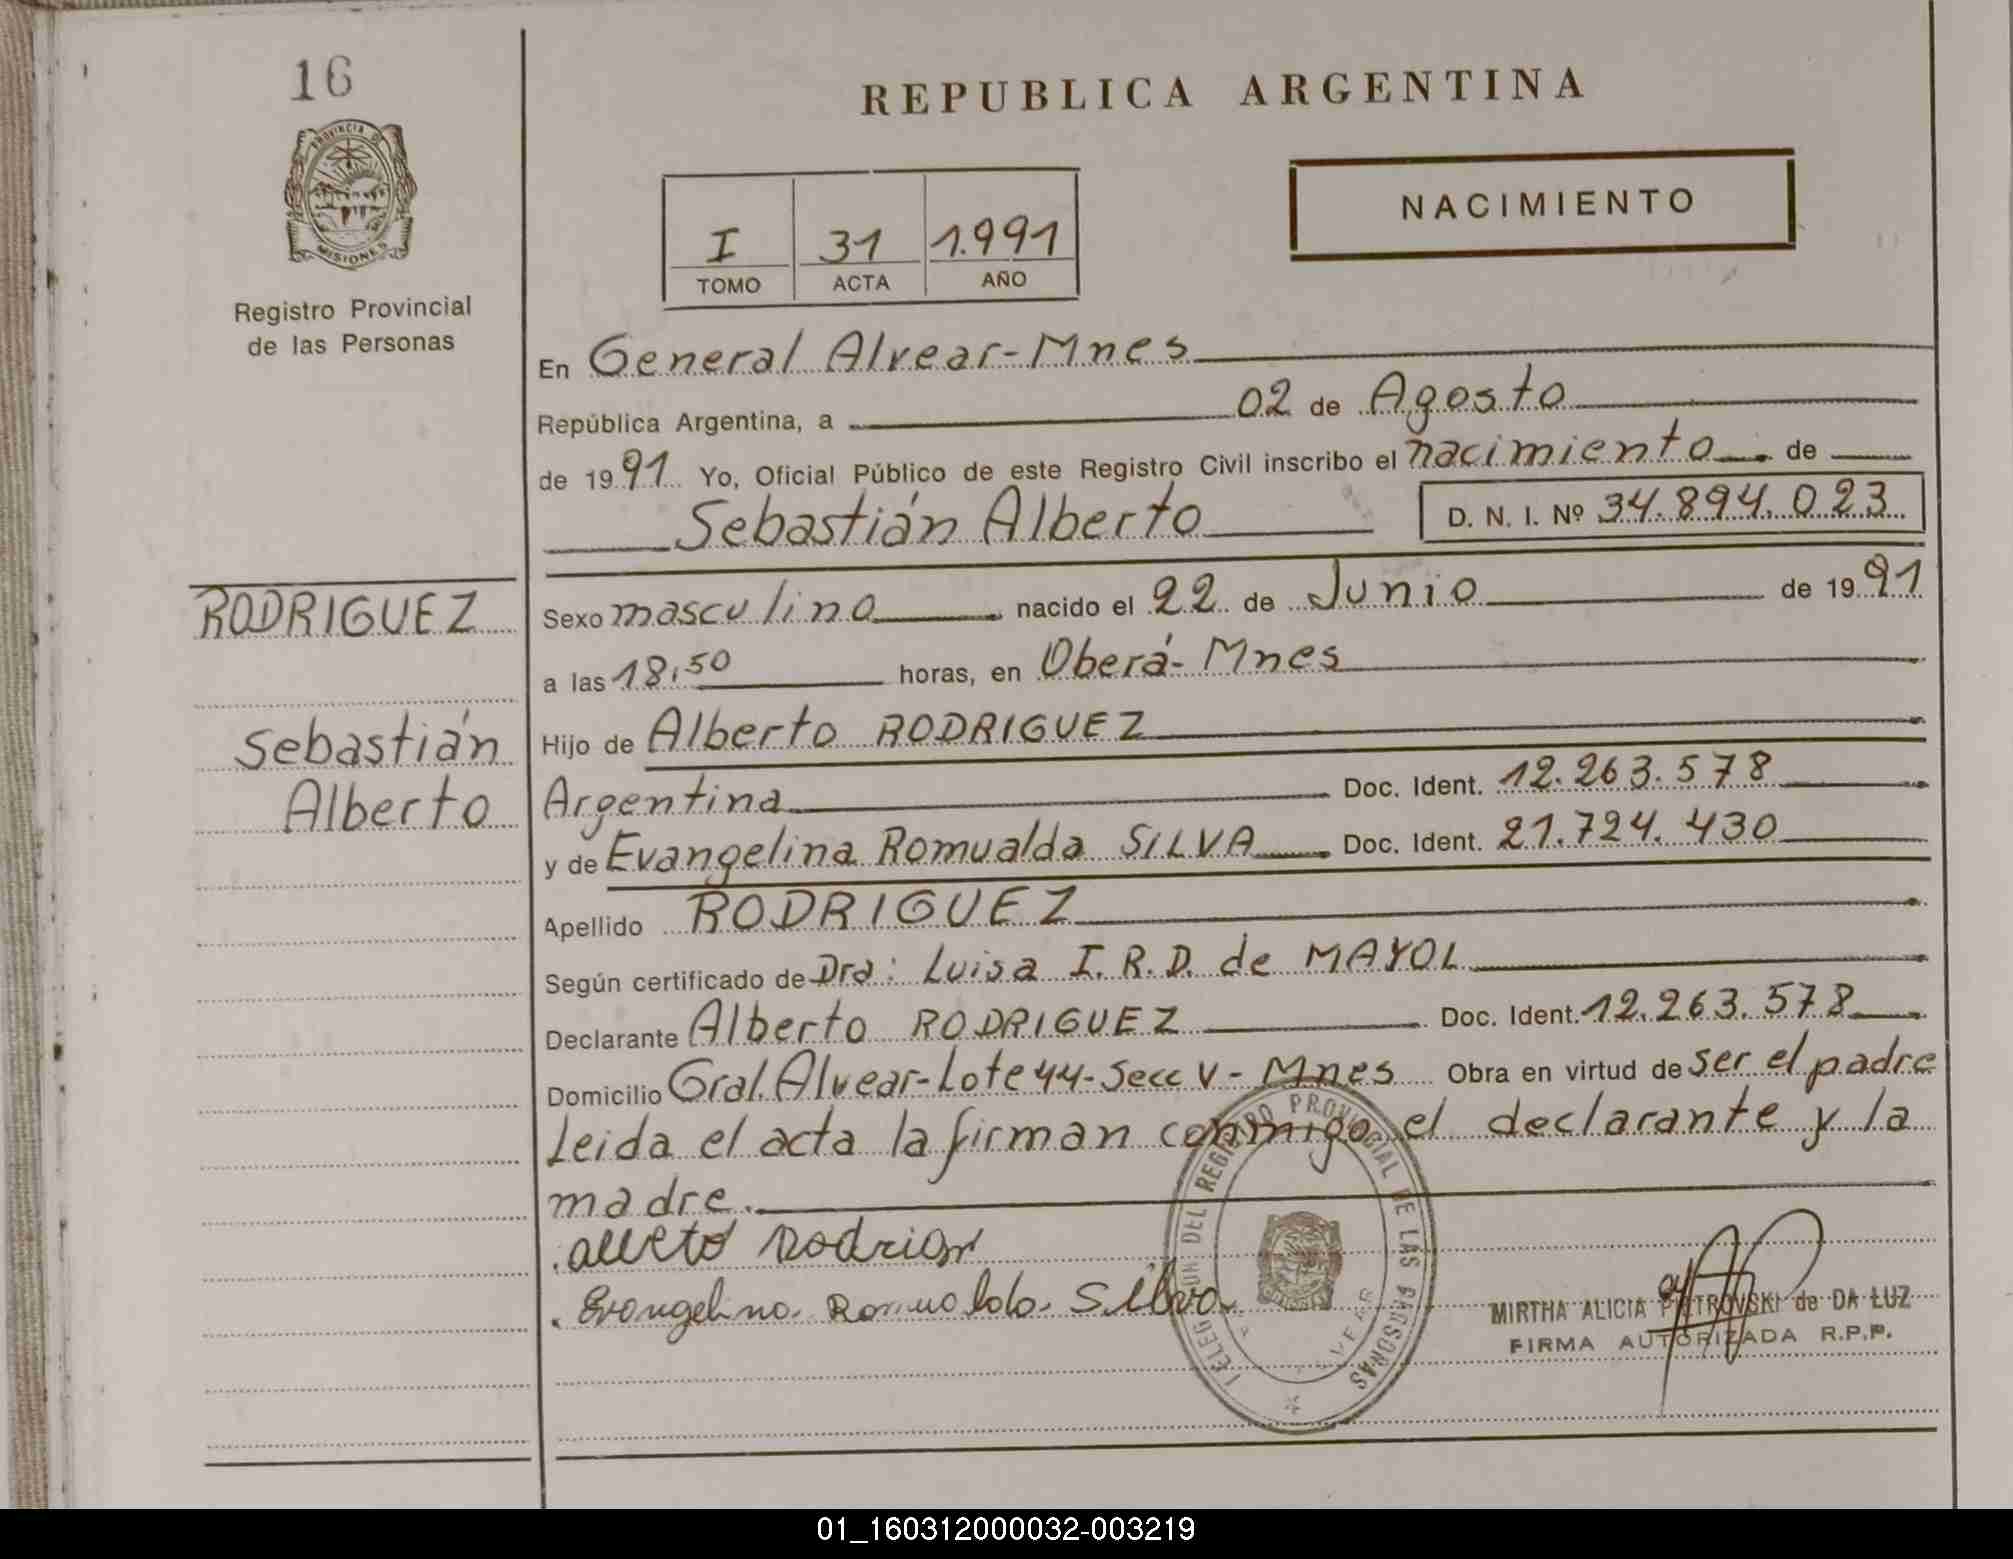 16
PROVINCIA DE
MISIONES
Registro Provincial
de las Personas
REPUBLICA ARGENTINA
I 31 1.991
TOMO ACTA AÑO
NACIMIENTO
En General Alvear-Mnes
República Argentina, a 02 de Agosto
de 1991 Yo, Oficial Público de este Registro Civil inscribo el nacimiento de
Sebastián Alberto D. N. I. Nº 34.894.023
RODRIGUEZ
Sebastián
Alberto
Sexo masculino nacido el 22 de Junio de 1991
a las 18,50 horas, en Oberá- Mnes
Hijo de Alberto RODRIGUEZ
Argentina Doc. Ident. 12.263.578
y de Evangelina Romualda SILVA Doc. Ident. 21.724.430
Apellido RODRIGUEZ
Según certificado de Dra: Luisa I. R. D. de MAYOL
Declarante Alberto RODRIGUEZ Doc. Ident. 12.263.578
Domicilio Gral. Alvear-Lote 44-Secc V- Mnes Obra en virtud de ser el padre
Leida el acta la firman conmigo el declarante y la
madre.
Rodrigr
Evangelina Romualda Silva
DEL REGISTRO PROVINCIAL DE LAS PERSONAS
MIRTHA ALICIA PIETROVSKI de DA LUZ
FIRMA AUTORIZADA R.P.P.
01_160312000032-003219